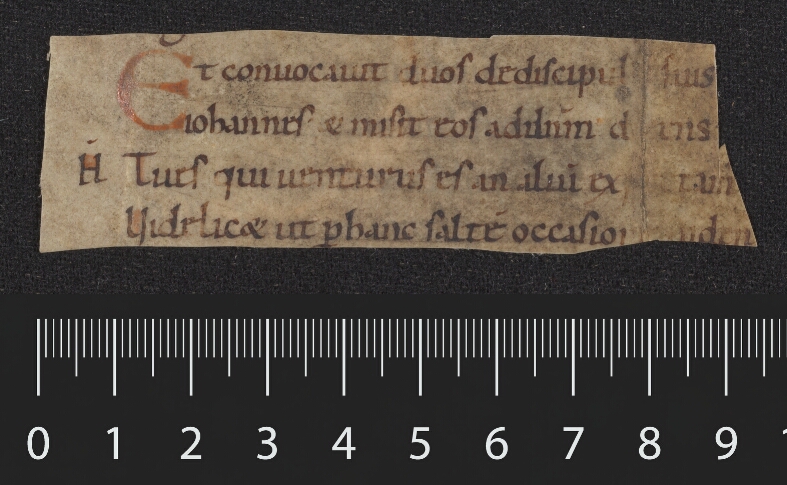 Et conuocauit duos dediscipul suis
iohannes & misit eos adihm d ens
H Tu es qui uenturus es an aliū ex tam
Uidelicæ ut p hanc saltē occasion uiden
0 1 2 3 4 5 6 7 8 9